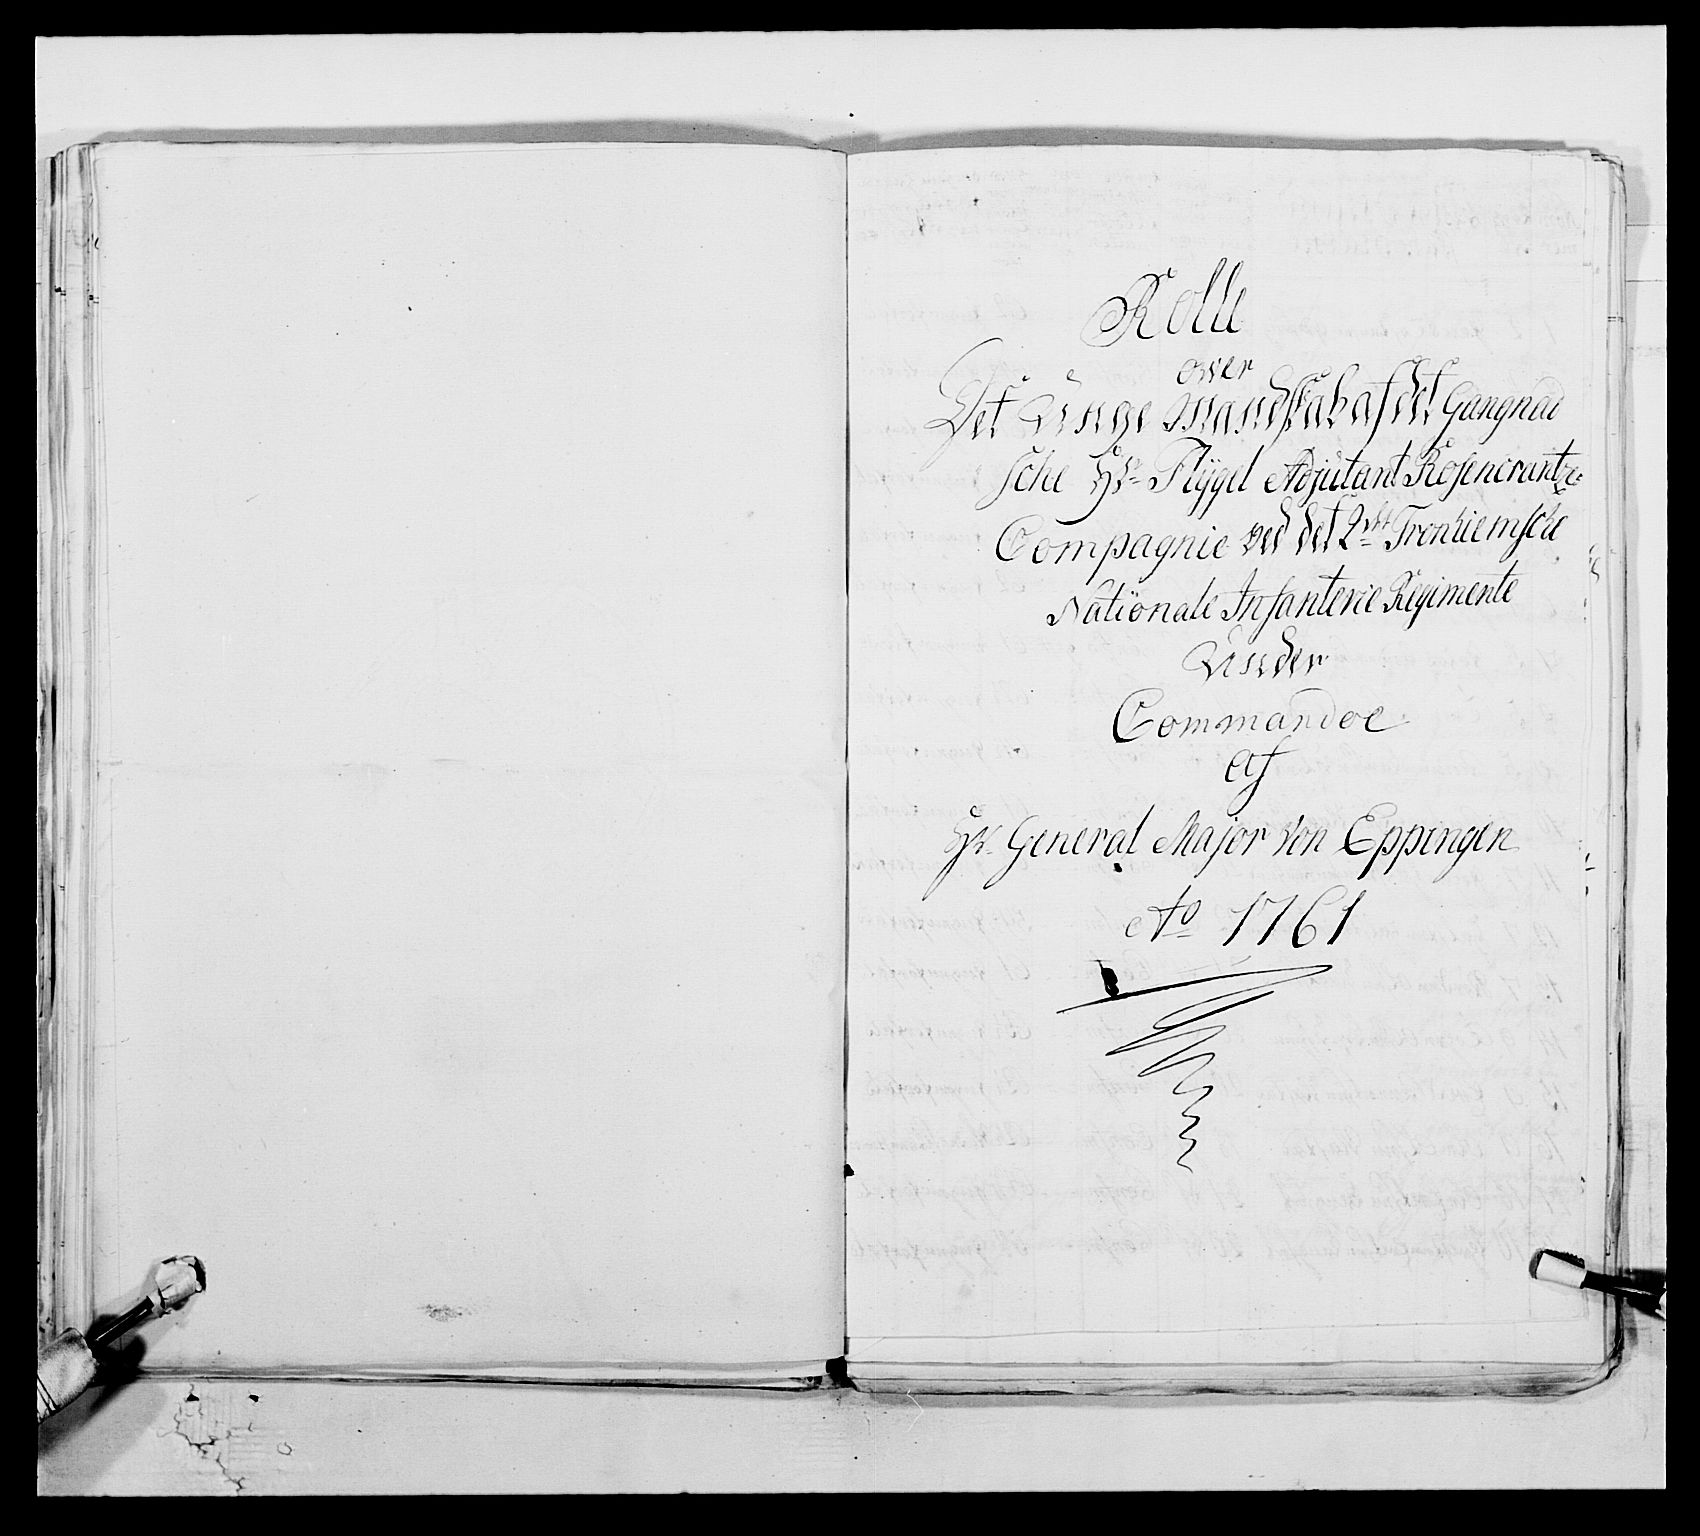 Rolle
over
Det Unge Mandskab af det Gangnad
sche Hr Flÿgel Adjutant Rosencrantz
Compagnie ved det 2det Tronhiemsche
Nationale Infanterie Regimente
Under
Commandoe
af
Hr General Major von Eppingen
Ao 1761